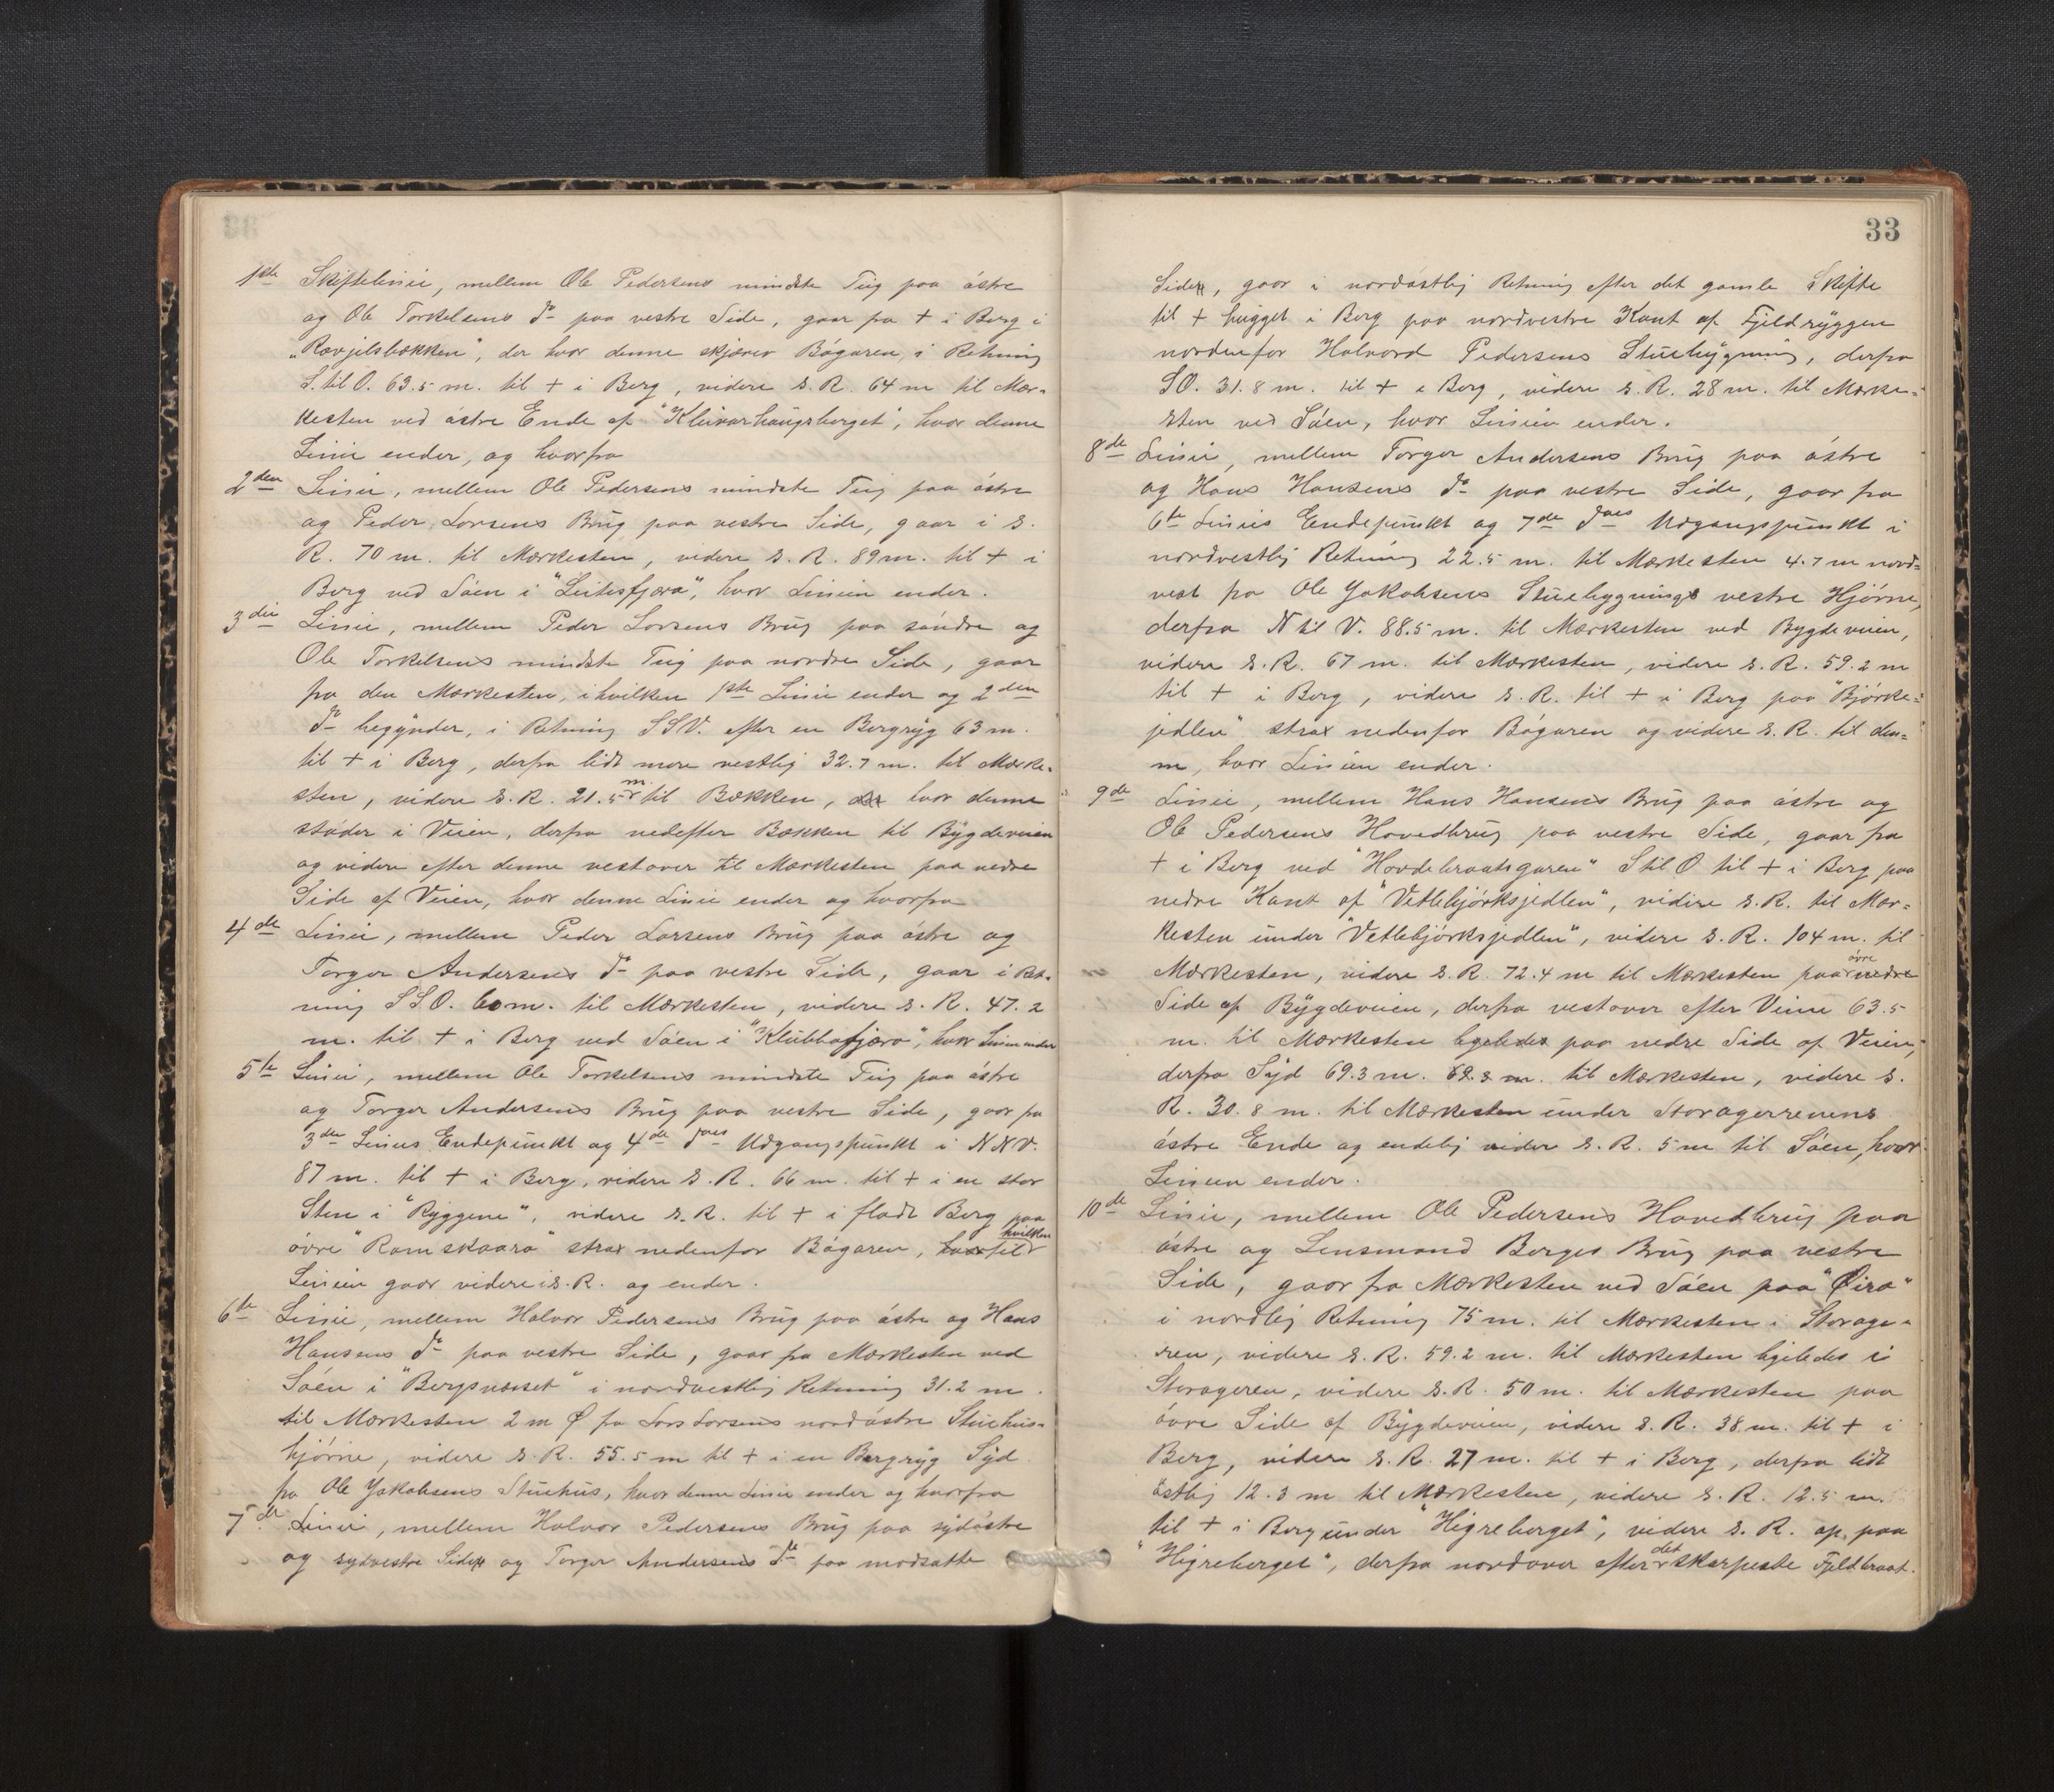 1ste Skiftelinie, mellem Ole Pedersens mindste Teig paa östre
og Ole Torkelsens do paa vestre Side, gaar fra + i Berg i
"Rævjelsbækken", der hvor denne skjærer Bögaren, i Retning
S. til O. 63.5 m. til + i Berg, videre s. R. 64 m til Mær-
kesten ved östre Ende af "Kleivarhaugsberget", hvor denne
Linie ender, og hvorfra
2den Linie, mellem Ole Pedersens mindste Teig paa östre
og Peder Larsens Brug paa vestre Side, gaar i s.
R. 70 m. til Mærkesten, videre s. R. 89 m. til + i
Berg ved Söen i "Leitesfjæra", hvor Linien ender.
3die Linie, mellem Peder Larsens Brug paa söndre og
Ole Torkelsens mindste Teig paa nordre Side, gaar
fra den Mærkesten, i hvilken 1ste Linie ender og 2den
do begynder, i Retning SSV. efter en Bergryg 63 m.
til + i Berg, derfra lidt mere vestlig 32.7 m. til Mærke-
sten, videre s. R. 21.5 m. til Bækken, der hvor denne
stöder i Veien, derfra nedefter Bækken til Bygdeveien
og videre efter denne vestover til Mærkesten paa nedre
Side af Veien, hvor denne Linie ender og hvorfra
4de Linie, mellem Peder Larsens Brug paa östre og
Torger Andersens do paa vestre Side, gaar i Ret-
ning SSO. 60 m. til Mærkesten, videre s. R. 47.2
m. til + i Berg ved Söen i "Klubbafjæra", hvor Linien ender
5te Linie, mellem Ole Torkelsens mindste Teig paa östre
og Torger Andersens Brug paa vestre Side, gaar fra
3die Linies Endepunkt og 4de does Udgangspunkt i NNV.
87 m. til + i Berg, videre s. R. 66 m. til + i en stor
Sten i "Ryggene", videre s. R. til + i fladt Berg paa
övre "Ramskaara" strax nedenfor Bögaren, til hvilken
Linien gaar videre i s. R. og ender.
6te Linie, mellem Halvor Pedersens Brug paa östre og Hans
Hansens do paa vestre Side, gaar fra Mærkesten ved
Söen i "Bergsnæset" i nordvestlig Retning 31.2 m.
til Mærkesten 2 m Ø fra Lars Larsens nordöstre Stuehus-
hjörne, videre s. R. 55.5 m til + i en Bergryg Syd
fra Ole Jakobsens Stuehus, hvor denne Linie ender og hvorfra
7de Linie, mellem Halvor Pedersens Brug paa sydöstre
og sydvestre Side og Torger Andersens do paa modsatte
33
Side, gaar i nordöstlig Retning efter det gamle Skifte
til + hugget i Berg paa nordvestre Kant af Fjeldryggen
nordenfor Halvord Pedersens Stuebygning, derfra
SO. 31.8 m. til + i Berg, videre s. R. 28 m. til Mærke-
sten ved Söen, hvor Linien ender.
8de Linie, mellem Torger Andersens Brug paa östre
og Hans Hansens do paa vestre Side, gaar fra
6te Linies Endepunkt og 7de does Udgangspunkt i
nordvestlig Retning 22.5 m. til Mærkesten 4.7 m nord-
vest fra Ole Jakobsens Stuebygnings vestre Hjörne,
derfra N til V. 88.5 m. til Mærkesten ved Bygdeveien,
videre s. R. 67 m. til Mærkesten, videre s. R. 59.2 m
til + i Berg, videre s. R. til + i Berg paa "Björke-
jedlen" strax nedenfor Bögaren og videre s. R. til den-
ne, hvor Linien ender.
9de Linie, mellem Hans Hansens Brug paa östre og
Ole Pedersens Hovedbrug paa vestre Side, gaar fra
+ i Berg ved "Hovdebraatsgaren" S til O til + i Berg paa
nedre Kant af "Vetlebjörksjedlen", videre s. R. til Mær-
kesten under "Vetlebjörksjedlen", videre s. R. 104 m. til
Mærkesten, videre s. R. 72.4 m til Mærkesten paa övre nedre
Side af Bygdeveien, derfra vestover efter Veien 63.5
m. til Mærkesten ligeledes paa nedre Side af Veien,
derfra Syd 69.3 m. 69.3 m. til Mærkesten, videre s.
R. 30.8 m. til Mærkesten under Storagerrenens
östre Ende og endelig videre s. R. 5 m til Söen, hvor
Linien ender.
10de Linie, mellem Ole Pedersens Hovedbrug paa
östre og Lensmand Berges Brug paa vestre
Side, gaar fra Mærkesten ved Söen paa "Øira"
i nordlig Retning 75 m. til Mærkesten i Storage-
ren, videre s. R. 59.2 m. til Mærkesten ligeledes i
Storageren, videre s. R. 50 m. til Mærkesten paa
övre Side af Bygdeveien, videre s. R. 38 m. til + i
Berg, videre s. R. 27 m. til + i Berg, derfra lidt
östlig 12.3 m til Mærkesten, videre s. R. 12.5 m.
til + i Berg under "Higreberget", videre s. R. op paa
"Higreberget", derfra nordover efter det skarpeste Fjeldbraat.